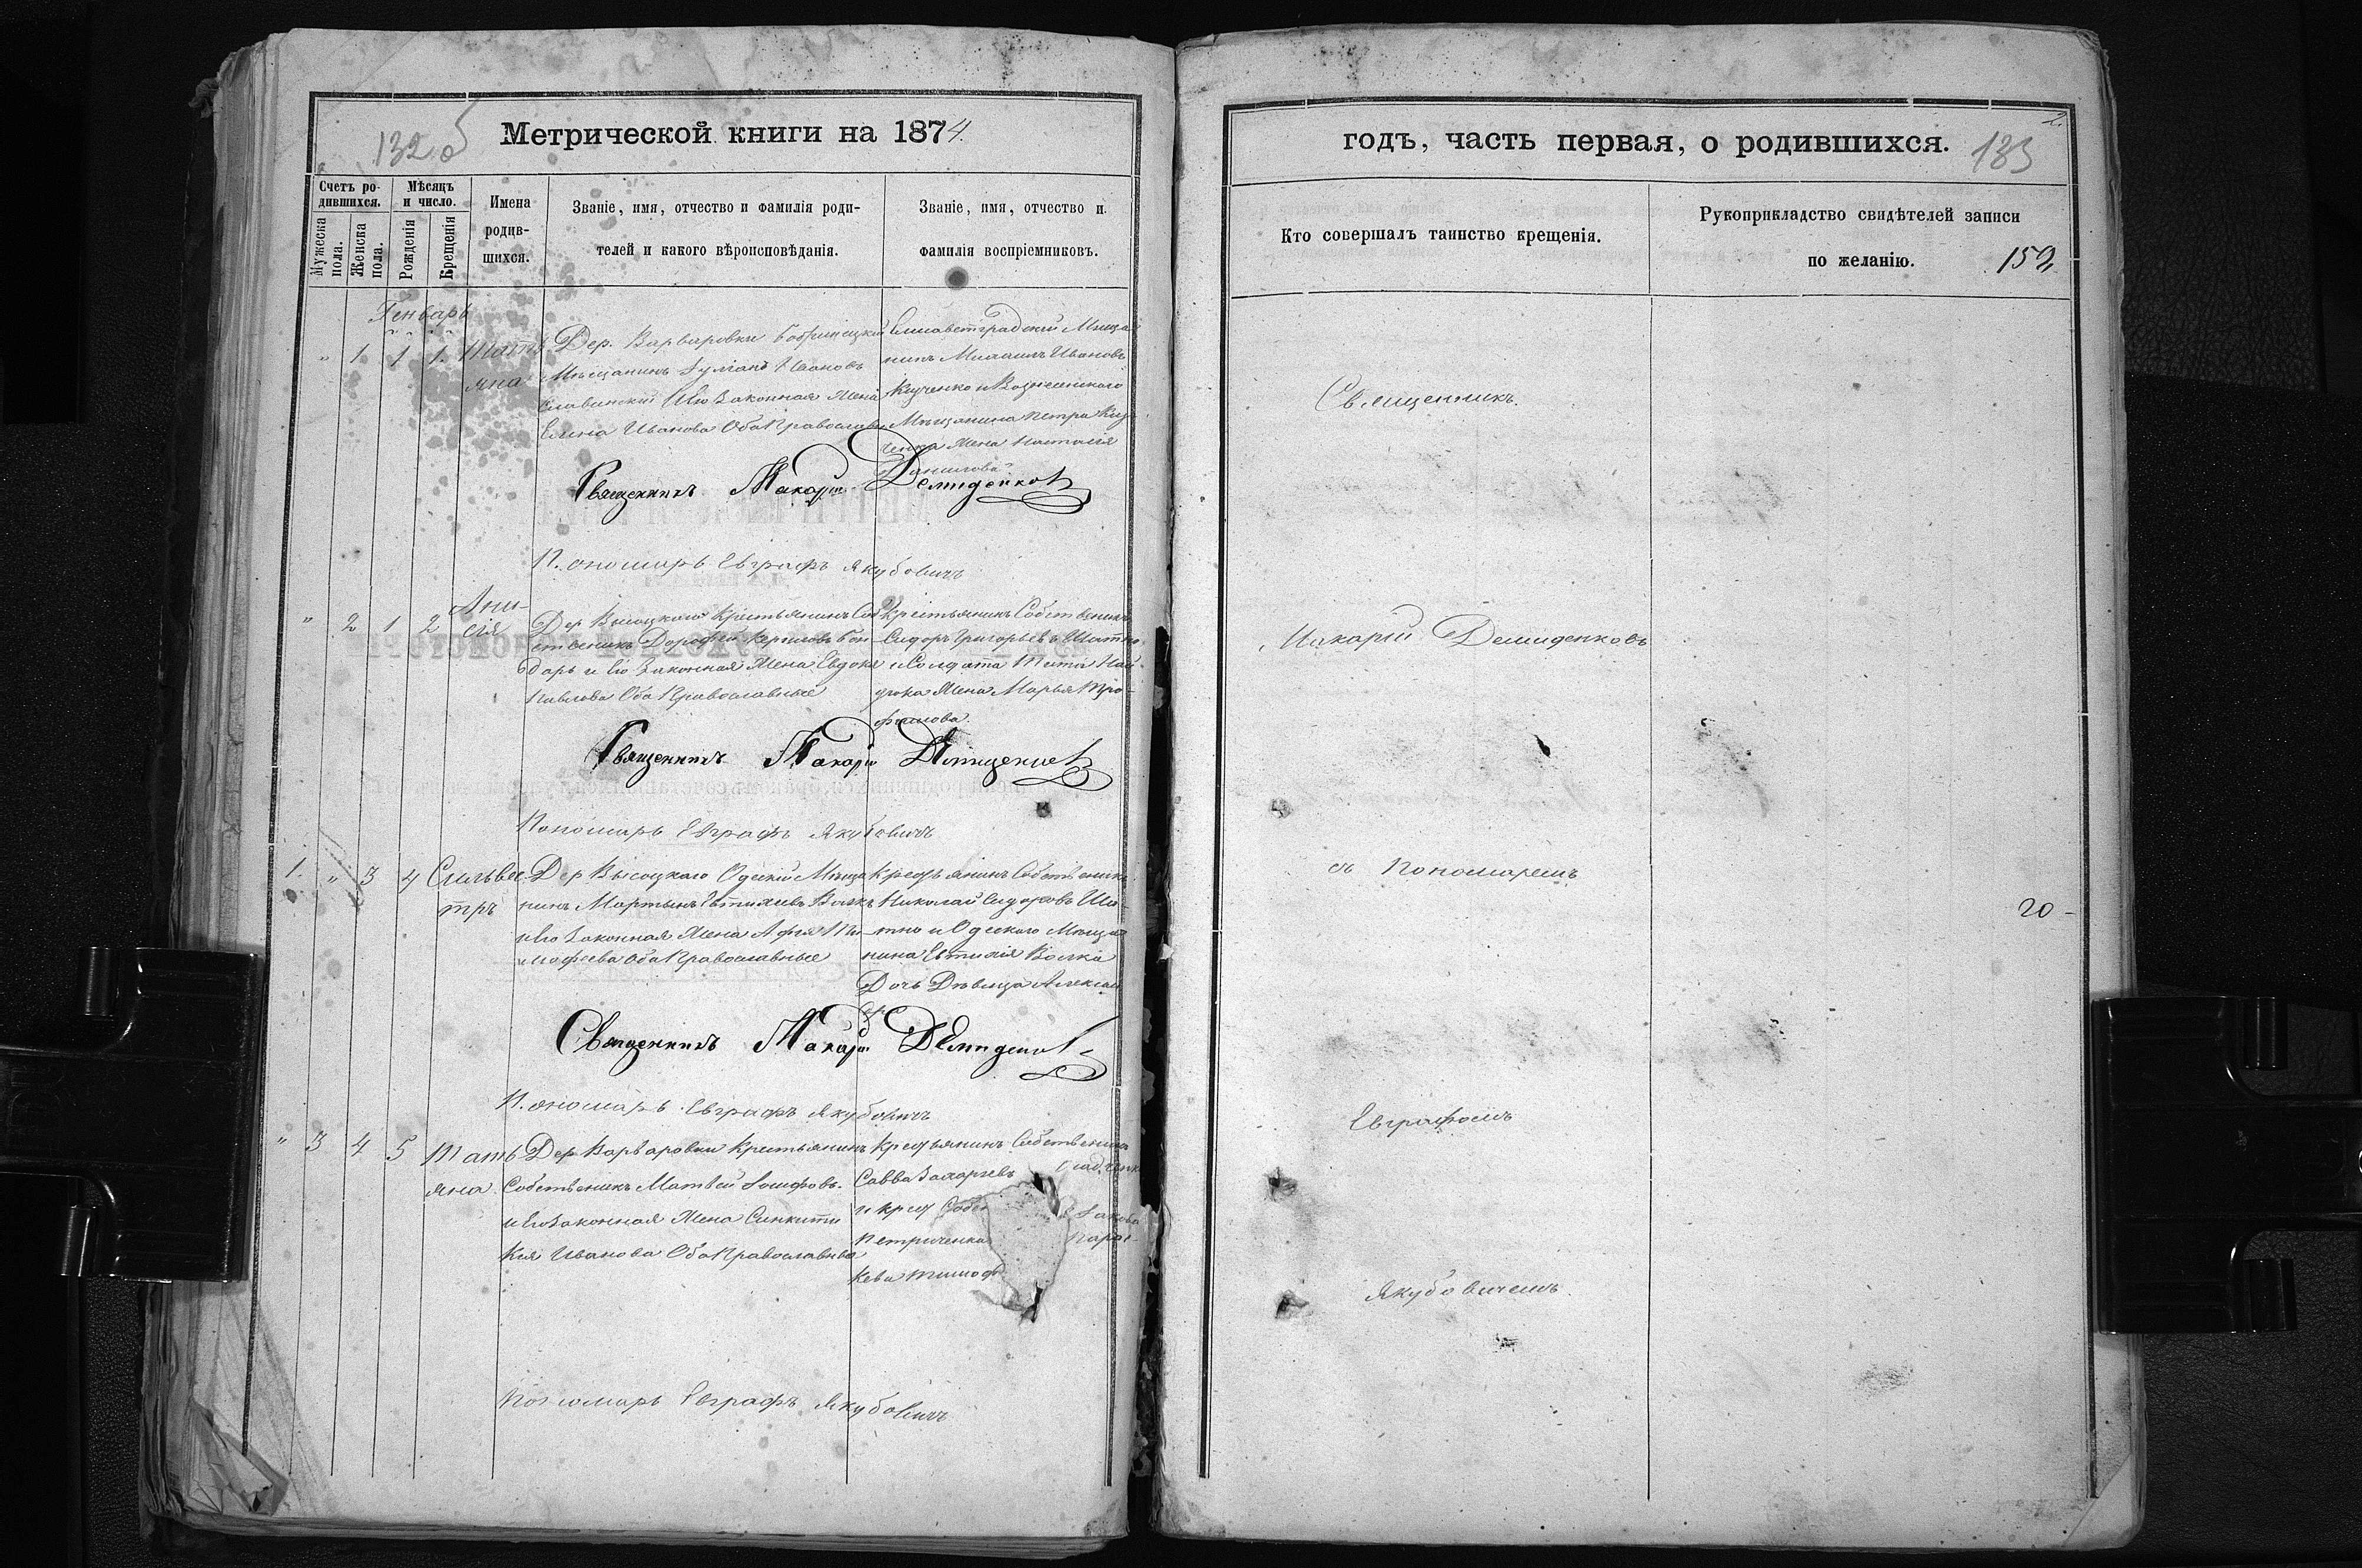 132 об
Метрической книги на 1874.
Счетъ ро-
дившихся.
Мужеска пола.
Женска пола.
Мѣсяцъ
и число.
Рожденія
Крещенія
Имена
родив-
шихся.
Званіе, имя, отчество и фамилія роди-
телей и какого вѣроисповѣданія.
Званіе, имя, отчество и
фамилія воспріемниковъ.
Генварь
" 1 1 1. Таті
яна
Дер. Варваровки Бобринецкій
Мѣщанинъ Іуліанъ Ивановъ
Славинскій и Его Законная Жена
Елена Иванова Оба Православн
Елисаветградскій Мѣща
нинъ Михаилъ Ивановъ
Мѣщанина Петра
ченка Жена Наталія
Данилова
Священникъ Макарій Демиденковъ
Пономарь Евграфъ Якубовичъ
" 2 1 2 Ани-
сія
Дер Высоцкаго Крестьянинъ Соб
ственникъ Дорофей Кириловъ Бон
дарь и Его Законная Жена Евдокія
Павлова Оба Православные
Крестьянинъ Собственникъ
Сидоръ Григорьевъ Шатно
и Солдата Тита Най
дюка Жена Марья Тро-
фимова.
Священникъ Макарій Демиденковъ
Пономарь Евграфъ Якубовичъ
1. " 3 4 Сильвес
тръ
Дер Высоцкаго Одескій Мѣща
нинъ Мартынъ Евтихіевъ Волкъ
и Его Законная Жена Афія Ти-
мофеева Оба Православные
Крестьянинъ Собственникъ
Николай Сидоровъ Ша-
тно и Одескаго Мѣща
нина Евтихія Волка
Дочь Дѣвица Алексан
Священникъ Макарій Демиденковъ
Пономарь Евграфъ Якубовичъ
" 3 4 5 Таті
яна
Дер Варваровки Крестьянинъ
Собственникъ Матвей Іосифовъ
и Его Законная Жена Синклити
кия Иванова Оба Православные
Крестьянинъ Собственникъ
Савва Захарьевъ
и крест Собс Іакова
Петриченка Парас-
кева Тимоф
Пономарь Евграфъ Якубовичъ
2.
годъ, часть первая, о родившихся.
133
Кто совершалъ таинство крещенія.
Рукоприкладство свидѣтелей записи
по желанію.
152
Священникъ.
Макарій Демиденковъ
съ Пономаремъ
20-
Евграфомъ
Якубовичемъ.